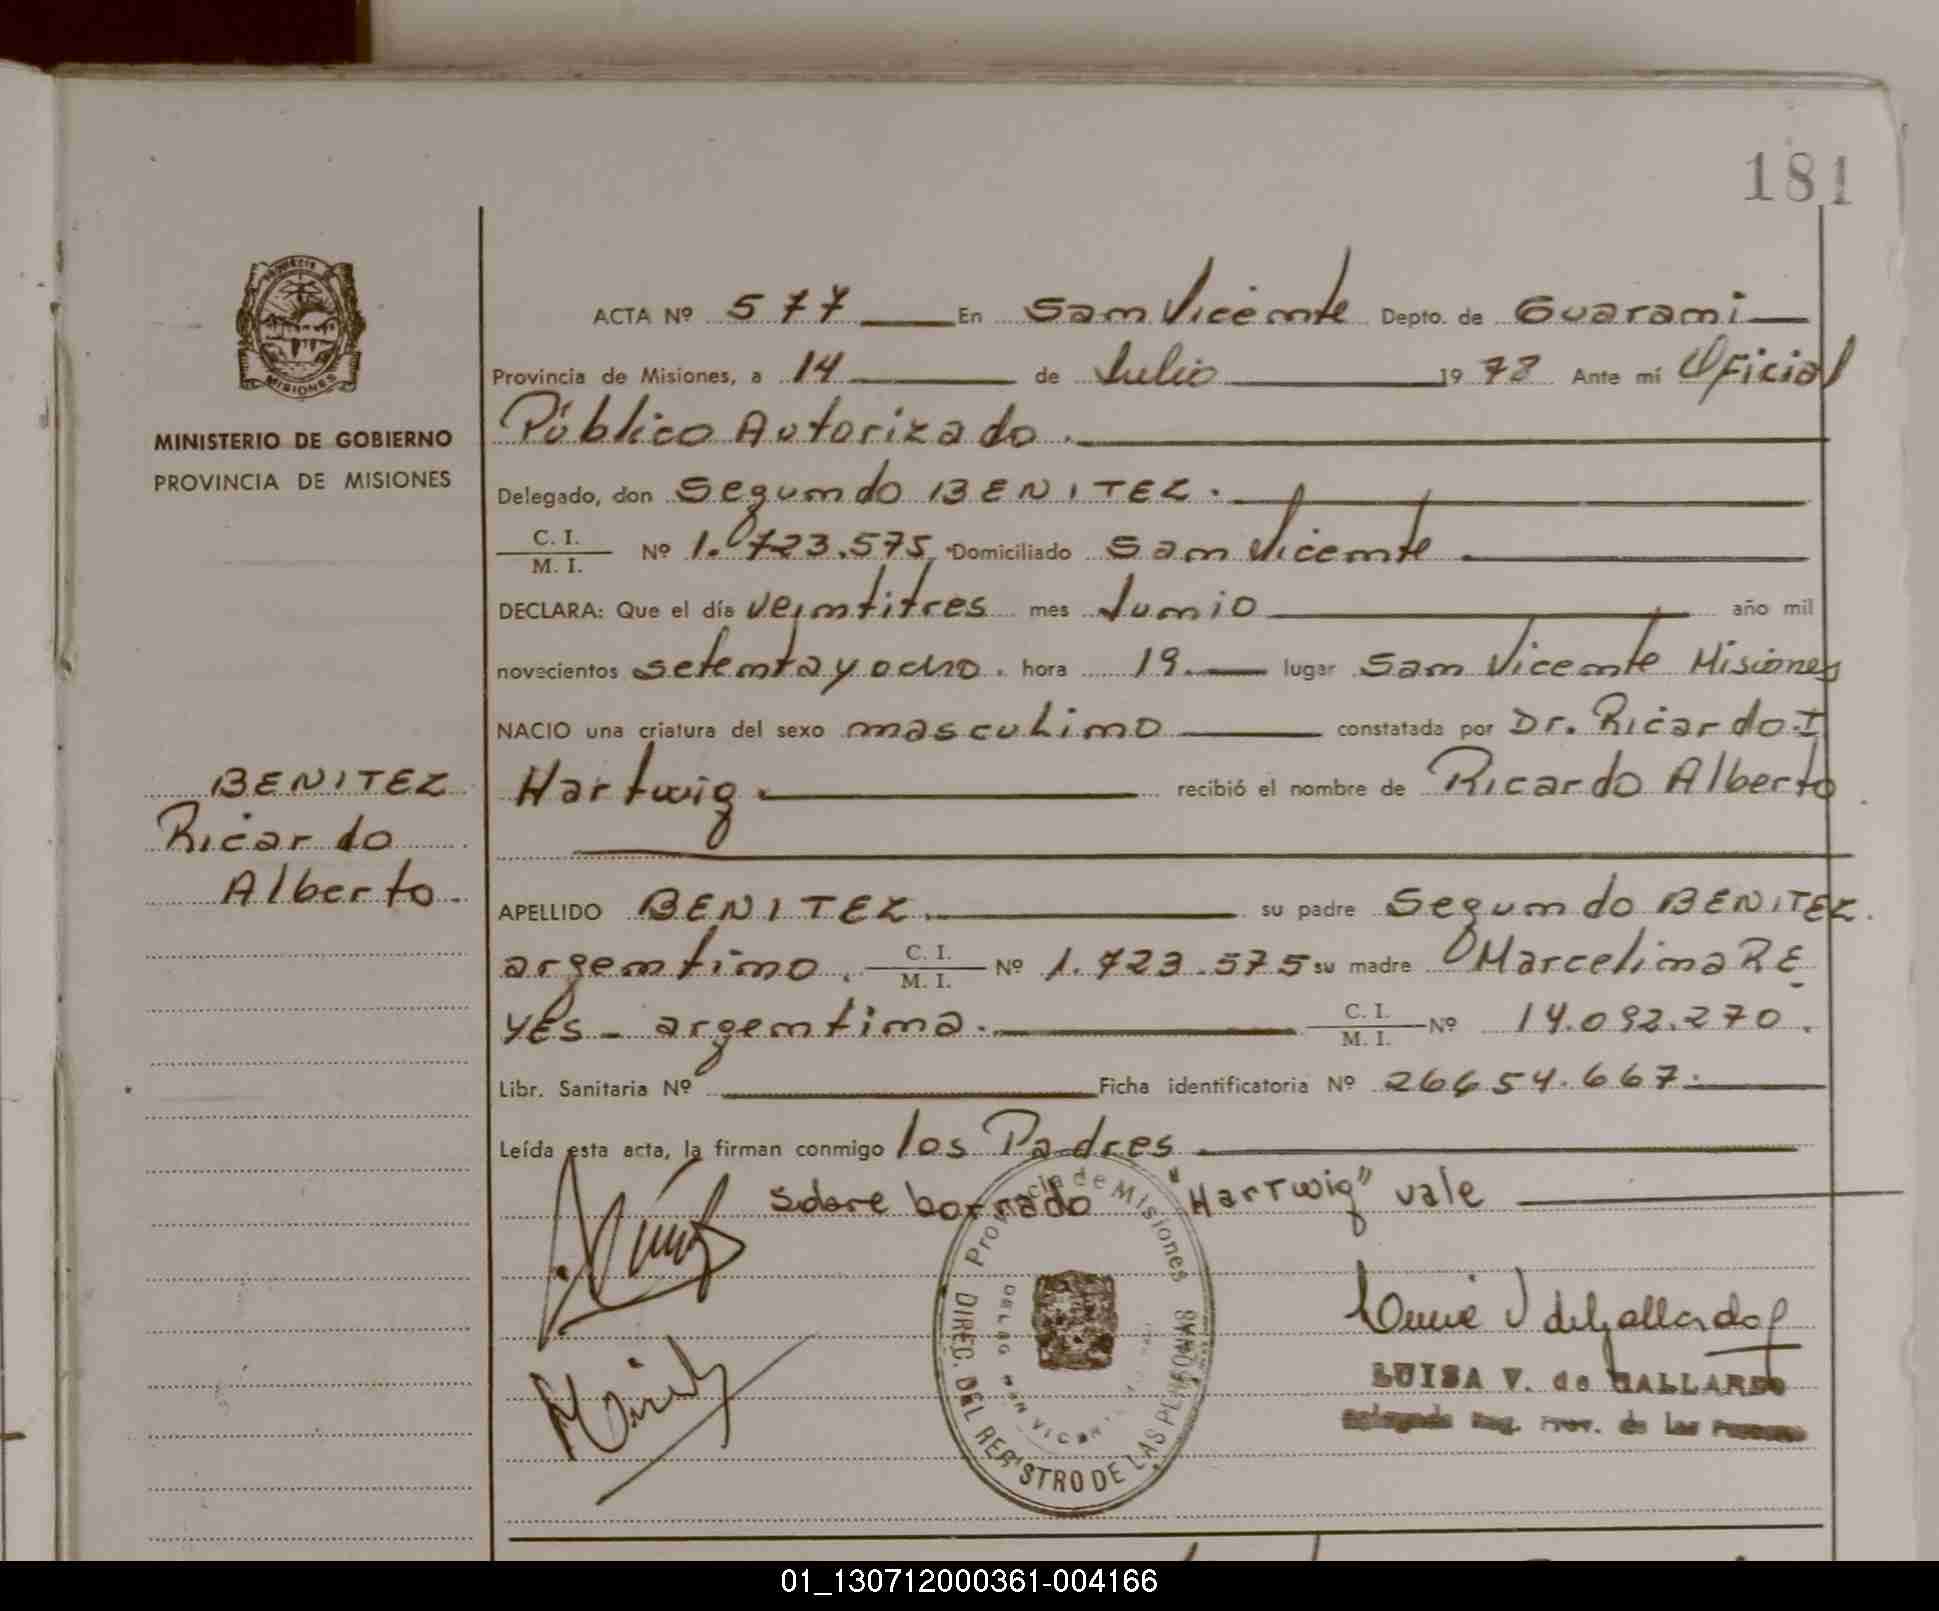 181
PROVINCIA
MISIONES
MINISTERIO DE GOBIERNO
PROVINCIA DE MISIONES
ACTA Nº 577 En San Vicente Depto. de Guarani
Provincia de Misiones, a 14 de Julio 1978 Ante mí Oficial
Público Autorizado.
Delegado, don Segundo BENITEZ.
C. I.
M. I. Nº 1.723.575 Domiciliado San Vicente
DECLARA: Que el día veintitres mes Junio año mil
novecientos setenta y ocho. hora 19. lugar San Vicente Misiones
NACIO una criatura del sexo masculino constatada por Dr. Ricardo I
Hartwig recibió el nombre de Ricardo Alberto
BENITEZ
Ricardo
Alberto.
APELLIDO BENITEZ. su padre Segundo BENITEZ.
argentino. C. I. M. I. Nº 1.723.575 su madre Marcelina RE
YES - argentina. C. I. M. I. Nº 14.092.270.
Libr. Sanitaria Nº Ficha identificatoria Nº 26654.667.
Leída esta acta, la firman conmigo los Padres
Sobre borrado "Hartwig" vale
Provincia de Misiones
DIREC. DEL REGISTRO DE LAS PERSONAS
LUISA V. de GALLARDO
Reg. Prov. de las
01_130712000361-004166